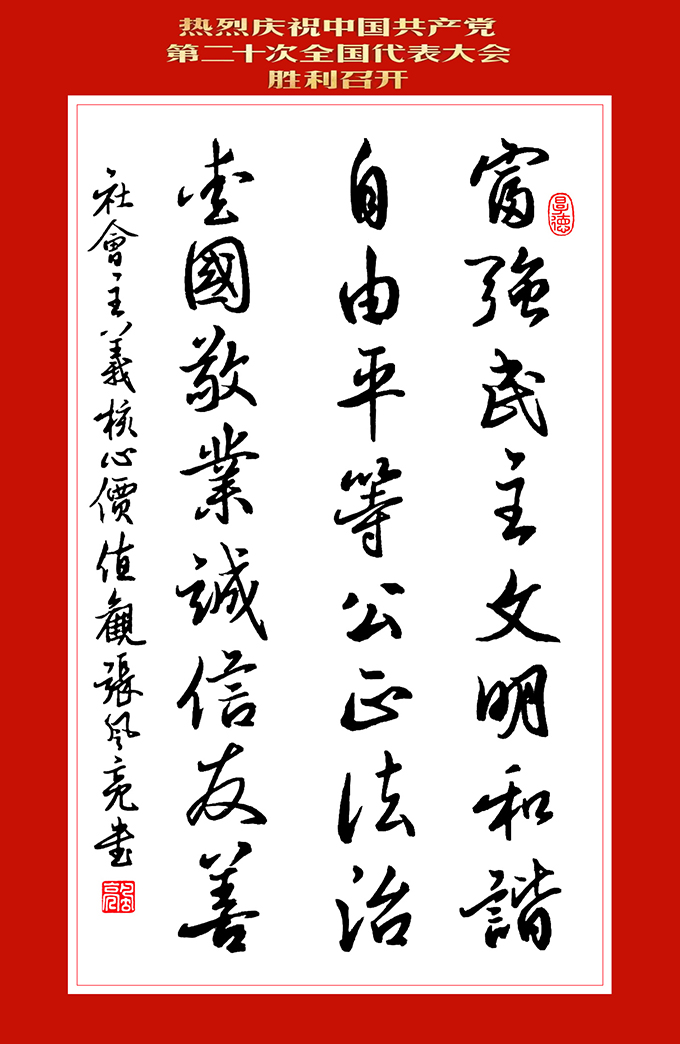 热烈庆祝中国共产党
第二十次全国代表大会
胜利召开
富強民主文明和諧
自由平等公正法治
愛國敬業誠信友善
社會主義核心價值觀張風亮書